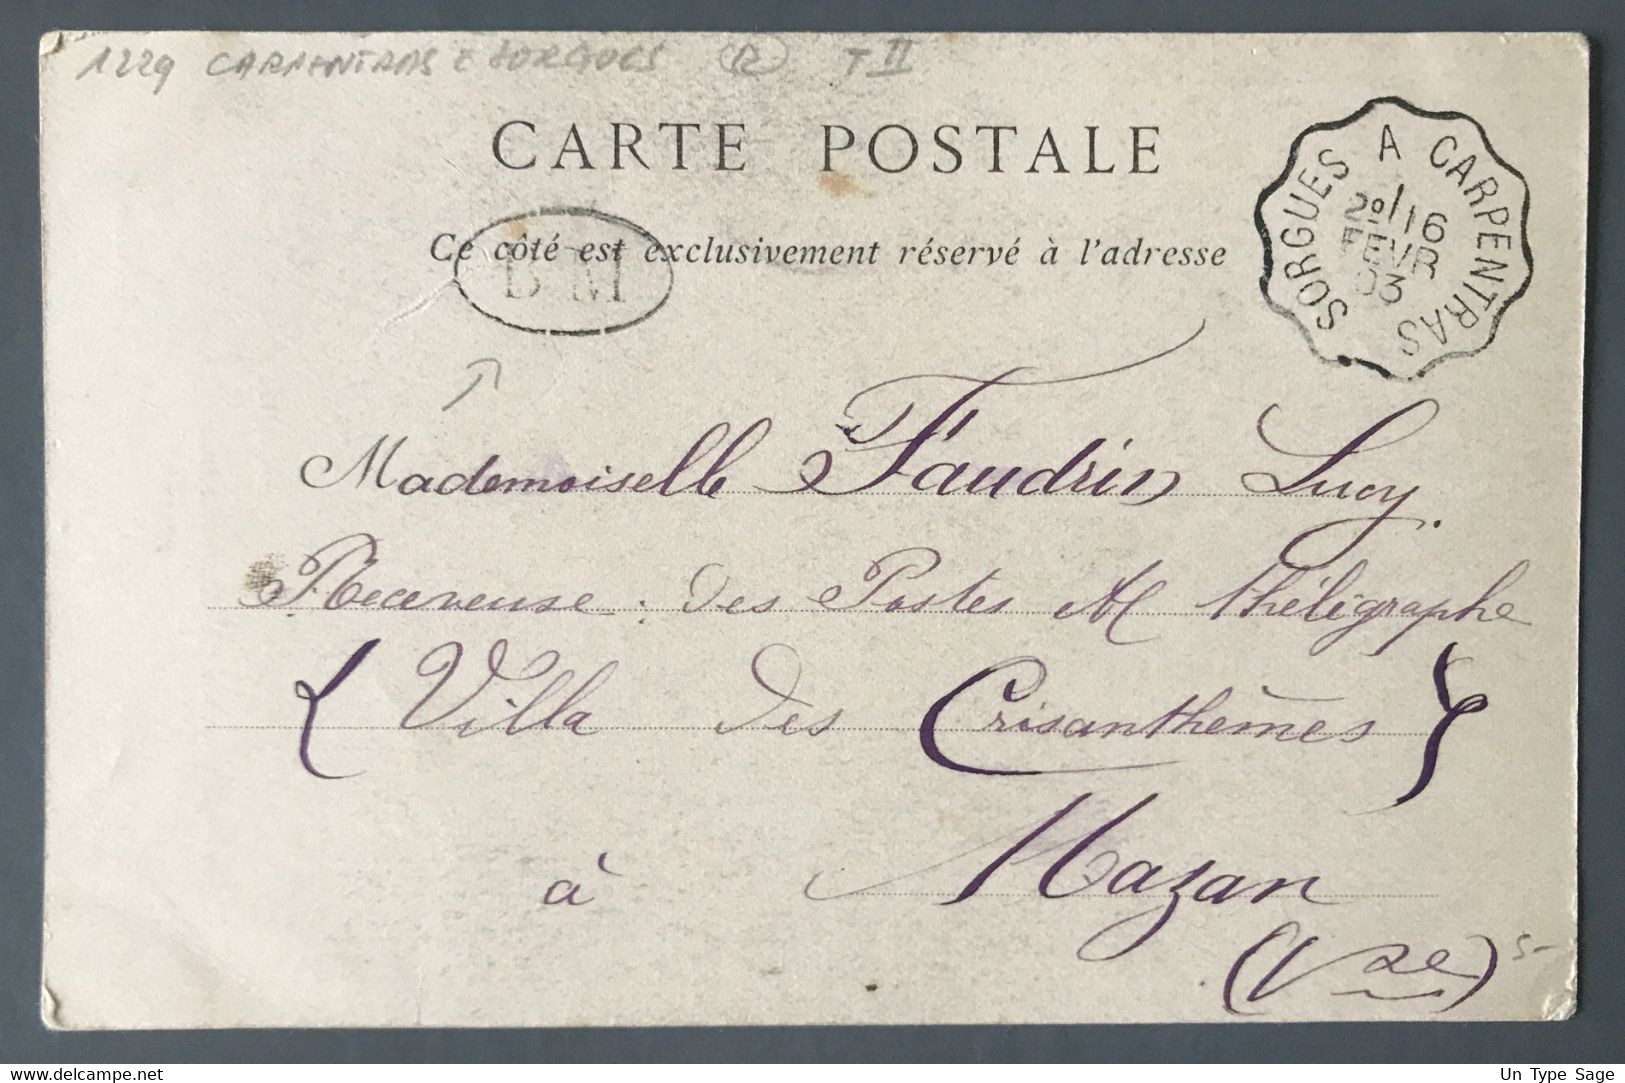 1229 CARPENTRAS à SORGUES (12) T II
CARTE POSTALE
Ce côté est exclusivement réservé à l'adresse
B M
SORGUES A CARPENTRAS
2º/16
FEVR
03
Mademoiselle Faudrin Lucy.
Receveuse : des Postes et théligraphe
(Villa des Crisanthèmes)
à Mazan
(Vse)
5-
delcampe.net
Un Type Sage